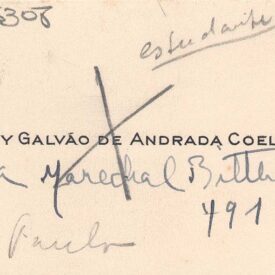 308
estudante
Y GALVÃO DE ANDRADA COEL
a Marechal Bitte
491
Paulo